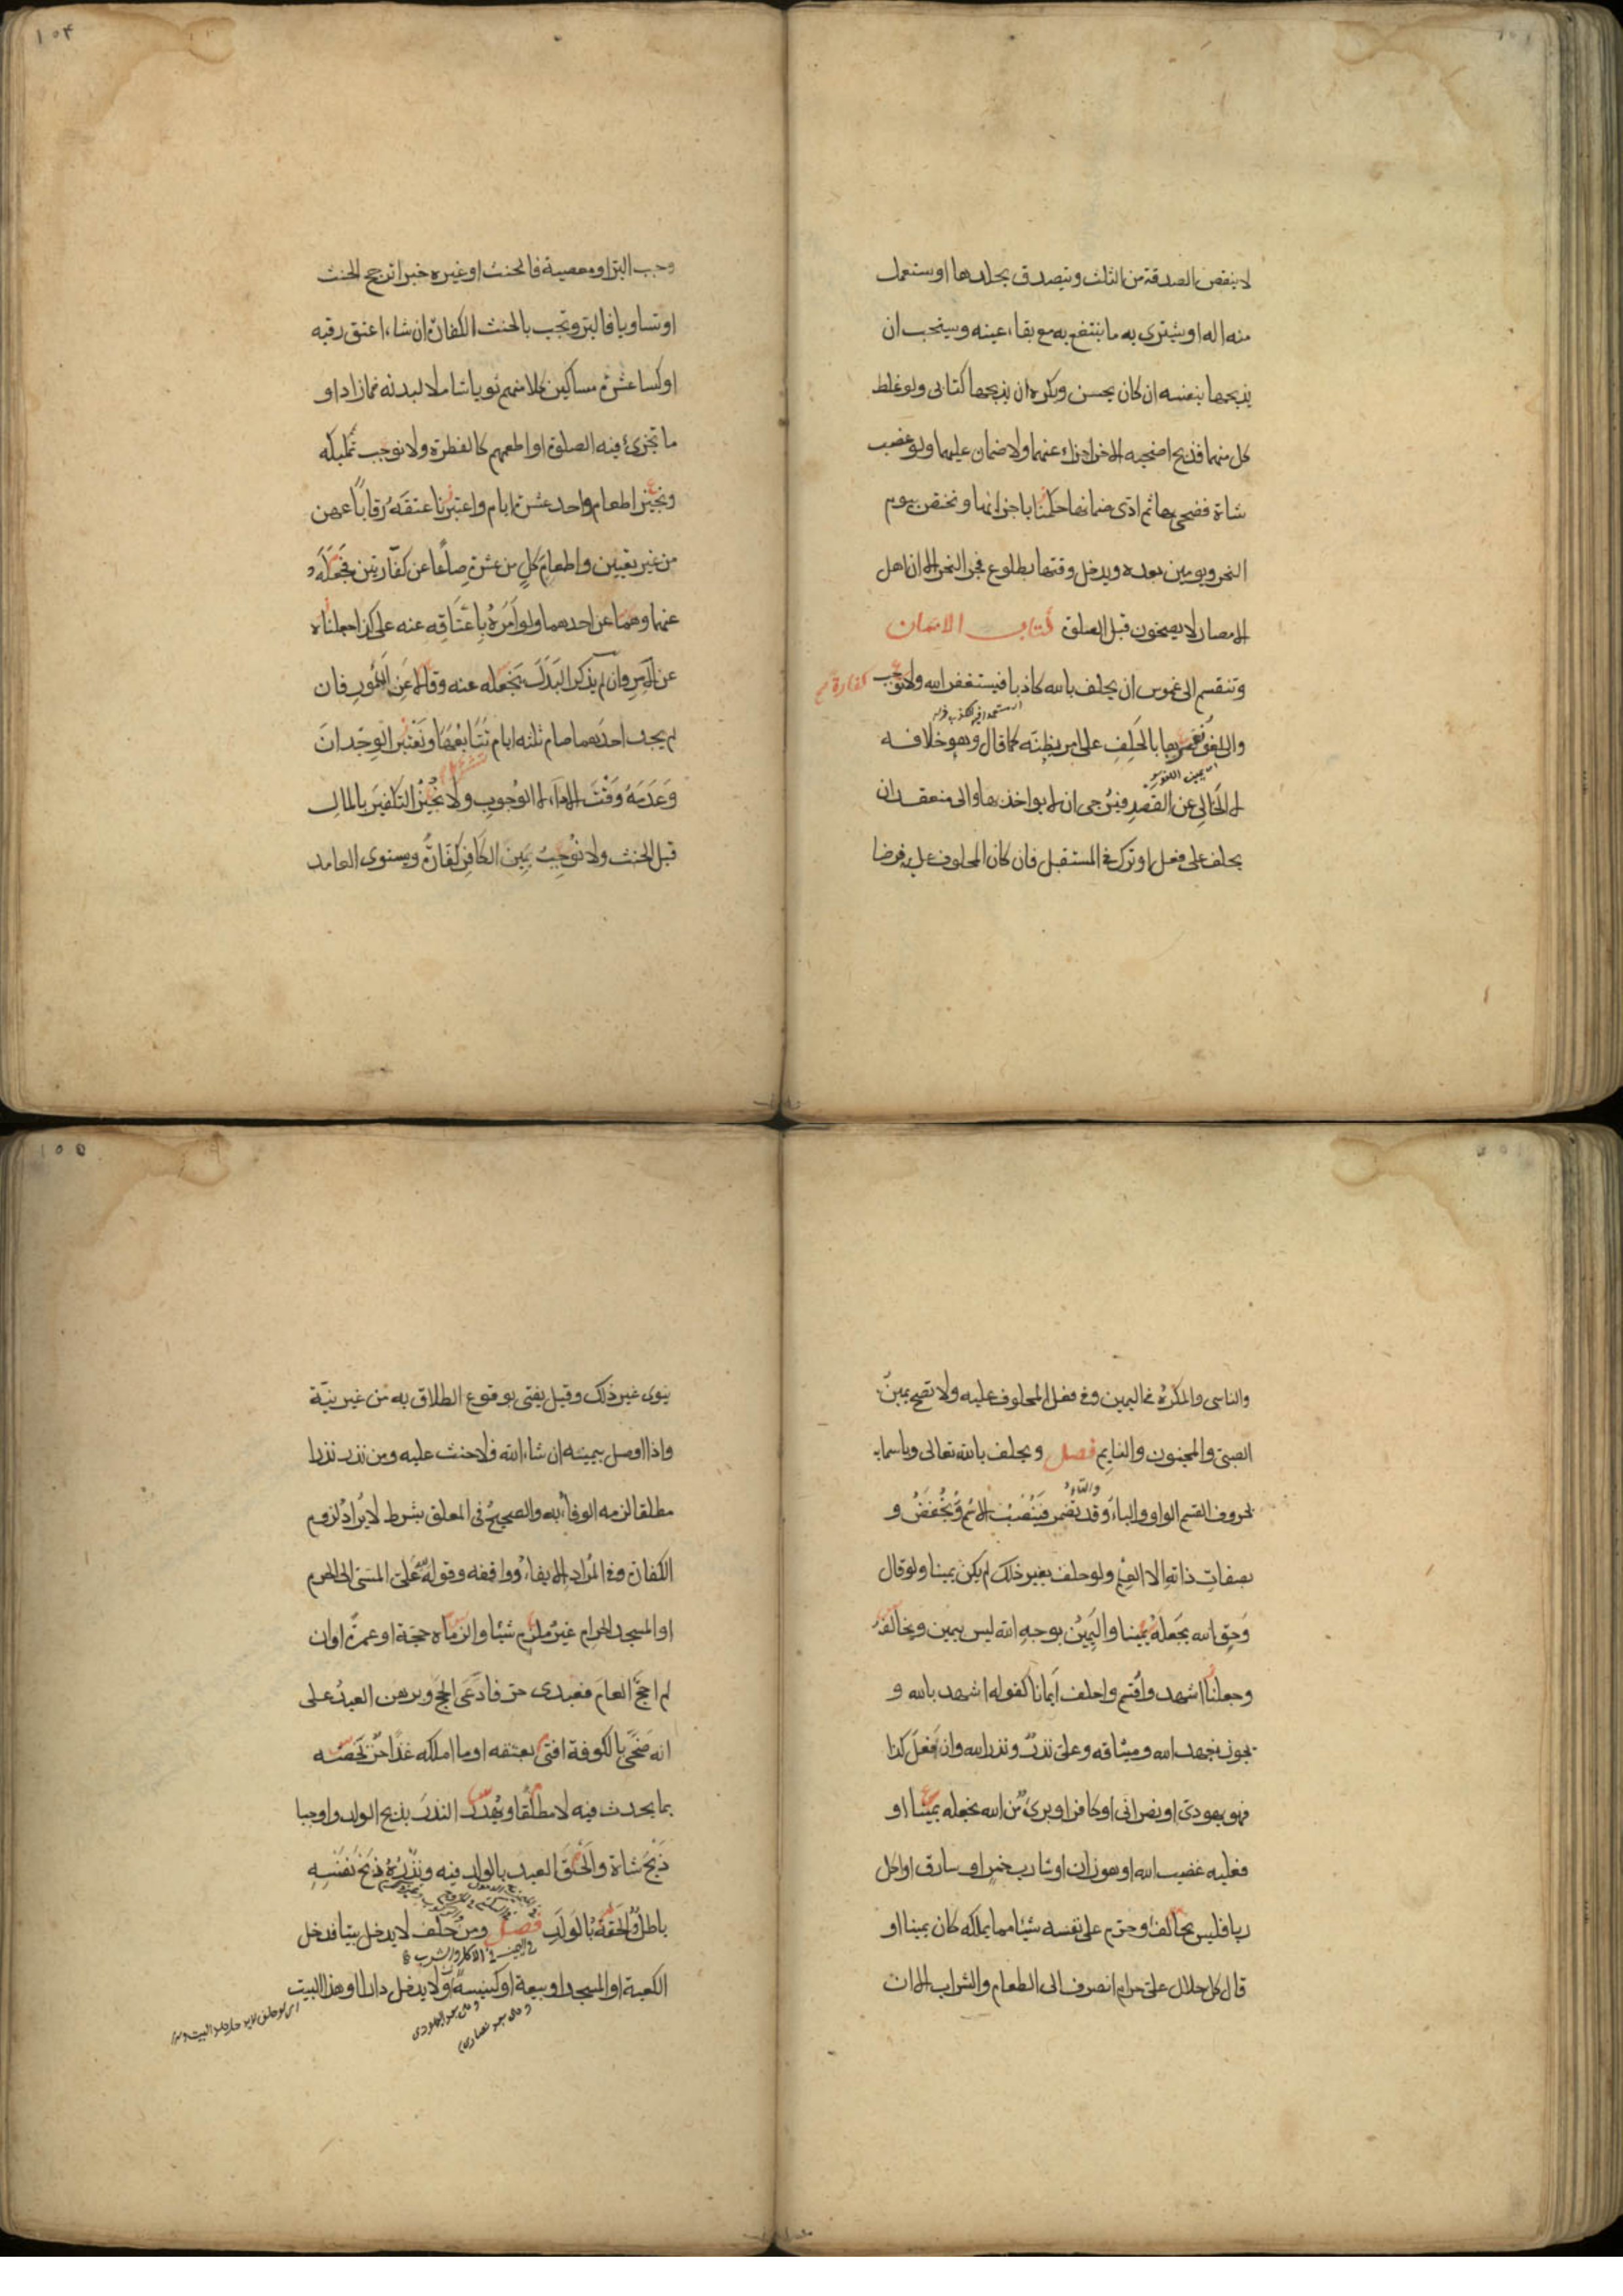 لا ينقص الصدقة من الثلث ويتصدق بجلدها او يستعمل
منه اله او يشترى به ما ينتفع به مع بقاء عينه ويستحب ان
يذبحها بنفسه ان كان يحسن ويكره ان يذبحها كتابى ولو غلط
كل منهما فذبح اضحيه الاخر اجزاء عنهما ولا ضمان عليهما ولو غصب
شاة فضحى بها ثم ادى ضمانها حكمنا باجزائها ونختص بيوم
النحر ويومين بعده ويدخل وقتها بطلوع فجر النحر الا ان اهل
الامصار لا يضحون قبل الصلوة كتاب الايمان
وتنقسم الى غموس ان يحلف بالله كاذبا فيستغفر الله ولا نوجب
كفارة صح
والى لغو نفسرها بالحلف على امر يظنه كما قال وهو خلافه
لا الخالى عن القصد فيرجى ان لا يواخذ بها والى منعقد ان
يحلف على فعل او ترك فى المستقبل فان كان المحلوف عليه فرضا
١٥٤
وجب البر او معصية فالحنث او غيره خيرا ترجح الحنث
او تساويا فالبر وتجب بالحنث الكفارة ان شاء اعتق رقبه
او كسا عشرة مساكين كلا منهم ثوبا شاملا لبدنه فما زاد او
ما تجزئ فيه الصلوة او اطعمهم كالفطرة ولا نوجب تمليكه
ونجيز اطعام واحد عشرة ايام واعتبرنا عتقه رقابا عهن
من غير تعيين واطعام كل من عشرة صاعا عن كفارتين نجعله
عنهما وهما عن احدهما ولو امره باعتاقه عنه على كذا جعلناه
عن الامر وان لم يذكر البدل نجعله عنه وقالا عن المأمور فان
لم يجد احدهما صام ثلثه ايام نتابعها ونعتبر الوجدان
وعدمه وقت الاداء لا الوجوب ولا نجيز التكفير بالمال
قبل الحنث ولا نوجب يمين الكافر كفارة ويستوى العامد
والناسى والمكره فى اليمين وفى فعل المحلوف عليه ولا تصح يمين
الصبى والمجنون والنايم فصل ويحلف بالله تعالى وباسمايه
والتاء
بحروف القسم الواو والباء وقد تضمر فينصب الاسم ويخفض و
بصفات ذاته الا العلم ولو حلف بغير ذلك لم يكن يمينا ولو قال
وحق الله يجعله يمينا واليمين بوجه الله ليس بيمين ويخالفه
وجعلنا اشهد واقسم واحلف ايمانا كقوله اشهد بالله و
يجوز بعهد الله وميثاقه وعلى نذر ونذر الله وان فعل كذا
فهو يهودى او نصرانى او كافر او برئ من الله نجعله يمينا او
فعليه غضب الله او هو زان او شارب خمر او سارق او اكل
ربا فليس بحالف او حرم على نفسه شيئا مما يملكه كان يمينا او
قال كل حلال على حرام انصرف الى الطعام والشراب الا ان
١٥٥
ينوى غير ذلك وقيل يفتى بوقوع الطلاق به من غير نية
واذا اوصل بيمينه ان شاء الله فلا حنث عليه ومن نذر نذرا
مطلقا لزمه الوفاء به والصحيح فى المعلق بشرط لا يراد لزوم
الكفارة وفى المراد الايفاء ووافقه وقوله على المشى الى الحرم
او المسجد الحرام غير ملزم شيئا والزماه حجة او عمرة او ان
لم احج العام فعبدى حر فادعى الحج وبرهن العبد على
انه ضحى بالكوفة افتى بعتقه او ما املكه غدا حر نخصه
بما يحدث فيه لا مطلقا ويهدر النذر بذبح الولد واوجبا
ذبح شاة والحق العبد بالولد فيه ونذره ذبح نفسه
باطل والحقه بالولد فصل ومن حلف لا يدخل بيتا فدخل
الكعبة او المسجد او بيعة او كنيسة او لا يدخل دارا او هذا البيت